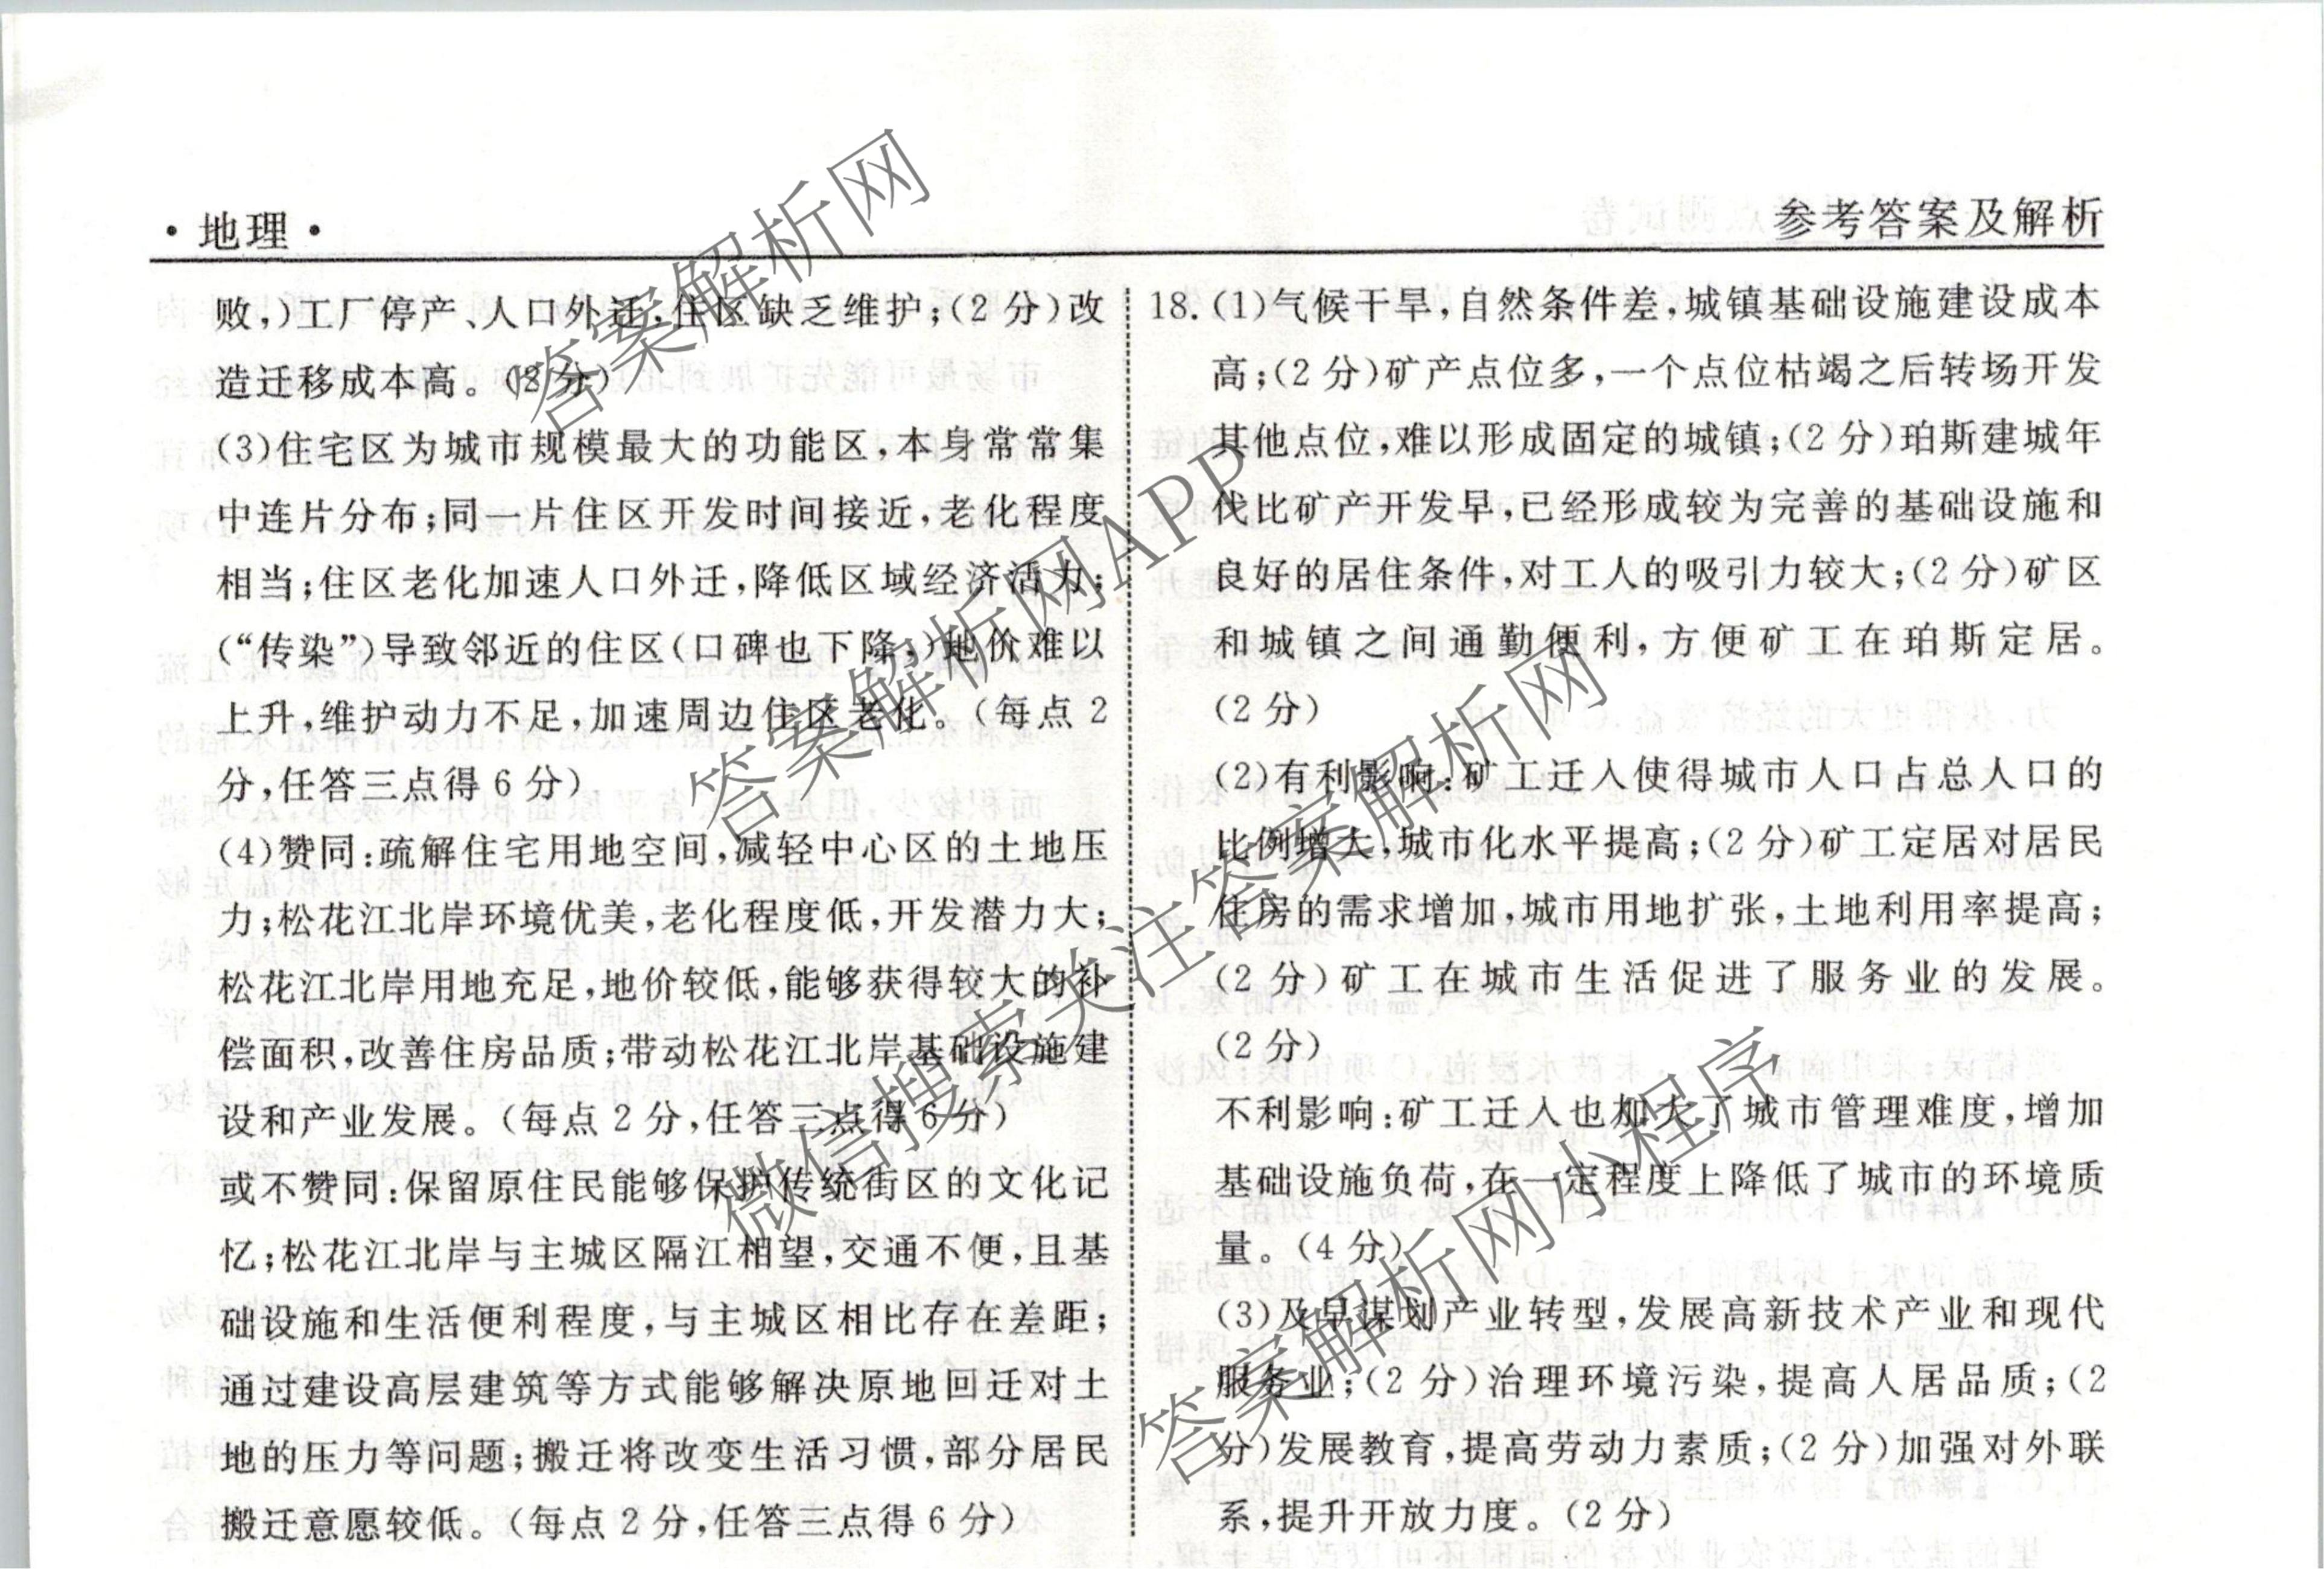 ·地理·
参考答案及解析
败,)工厂停产、人口外迁,住区缺乏维护;(2分)改
造迁移成本高。(2分)
(3)住宅区为城市规模最大的功能区,本身常常集
中连片分布;同一片住区开发时间接近,老化程度
相当;住区老化加速人口外迁,降低区域经济活力;
(“传染”)导致邻近的住区(口碑也下降,)地价难以
上升,维护动力不足,加速周边住区老化。(每点2
分,任答三点得6分)
(4)赞同:疏解住宅用地空间,减轻中心区的土地压
力;松花江北岸环境优美,老化程度低,开发潜力大;
松花江北岸用地充足,地价较低,能够获得较大的补
偿面积,改善住房品质;带动松花江北岸基础设施建
设和产业发展。(每点2分,任答三点得6分)
或不赞同:保留原住民能够保护传统街区的文化记
忆;松花江北岸与主城区隔江相望,交通不便,且基
础设施和生活便利程度,与主城区相比存在差距;
通过建设高层建筑等方式能够解决原地回迁对土
地的压力等问题;搬迁将改变生活习惯,部分居民
搬迁意愿较低。(每点2分,任答三点得6分)
18.(1)气候干旱,自然条件差,城镇基础设施建设成本
高;(2分)矿产点位多,一个点位枯竭之后转场开发
其他点位,难以形成固定的城镇;(2分)珀斯建城年
代比矿产开发早,已经形成较为完善的基础设施和
良好的居住条件,对工人的吸引力较大;(2分)矿区
和城镇之间通勤便利,方便矿工在珀斯定居。
(2分)
(2)有利影响:矿工迁入使得城市人口占总人口的
比例增大,城市化水平提高;(2分)矿工定居对居民
住房的需求增加,城市用地扩张,土地利用率提高;
(2分)矿工在城市生活促进了服务业的发展。
(2分)
不利影响:矿工迁入也加大了城市管理难度,增加
基础设施负荷,在一定程度上降低了城市的环境质
量。(4分)
(3)及早谋划产业转型,发展高新技术产业和现代
服务业;(2分)治理环境污染,提高人居品质;(2
分)发展教育,提高劳动力素质;(2分)加强对外联
系,提升开放力度。(2分)
答案解析网
答案解析网APP
微信搜索关注答案解析网
答案解析网小程序